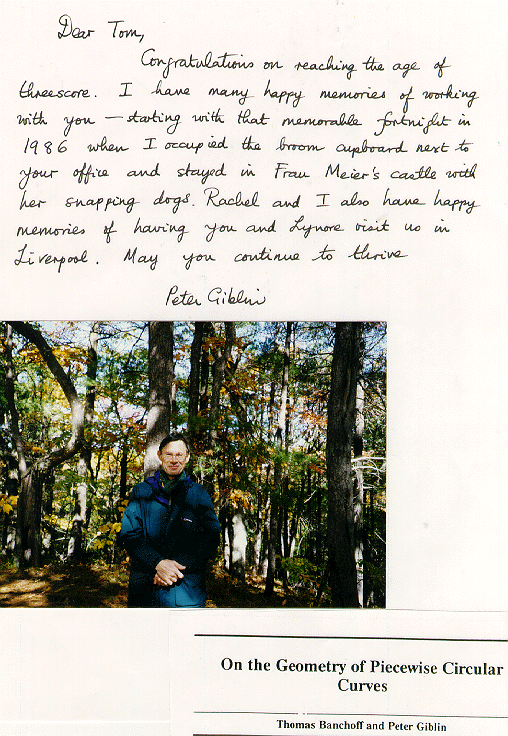 Dear Tom,
Congratulations on reaching the age of
threescore. I have many happy memories of working
with you — starting with that memorable fortnight in
1986 when I occupied the broom cupboard next to
your office and stayed in Frau Meier's castle with
her snapping dogs. Rachel and I also have happy
memories of having you and Lynore visit us in
Liverpool. May you continue to thrive
Peter Giblin
On the Geometry of Piecewise Circular
Curves
Thomas Banchoff and Peter Giblin